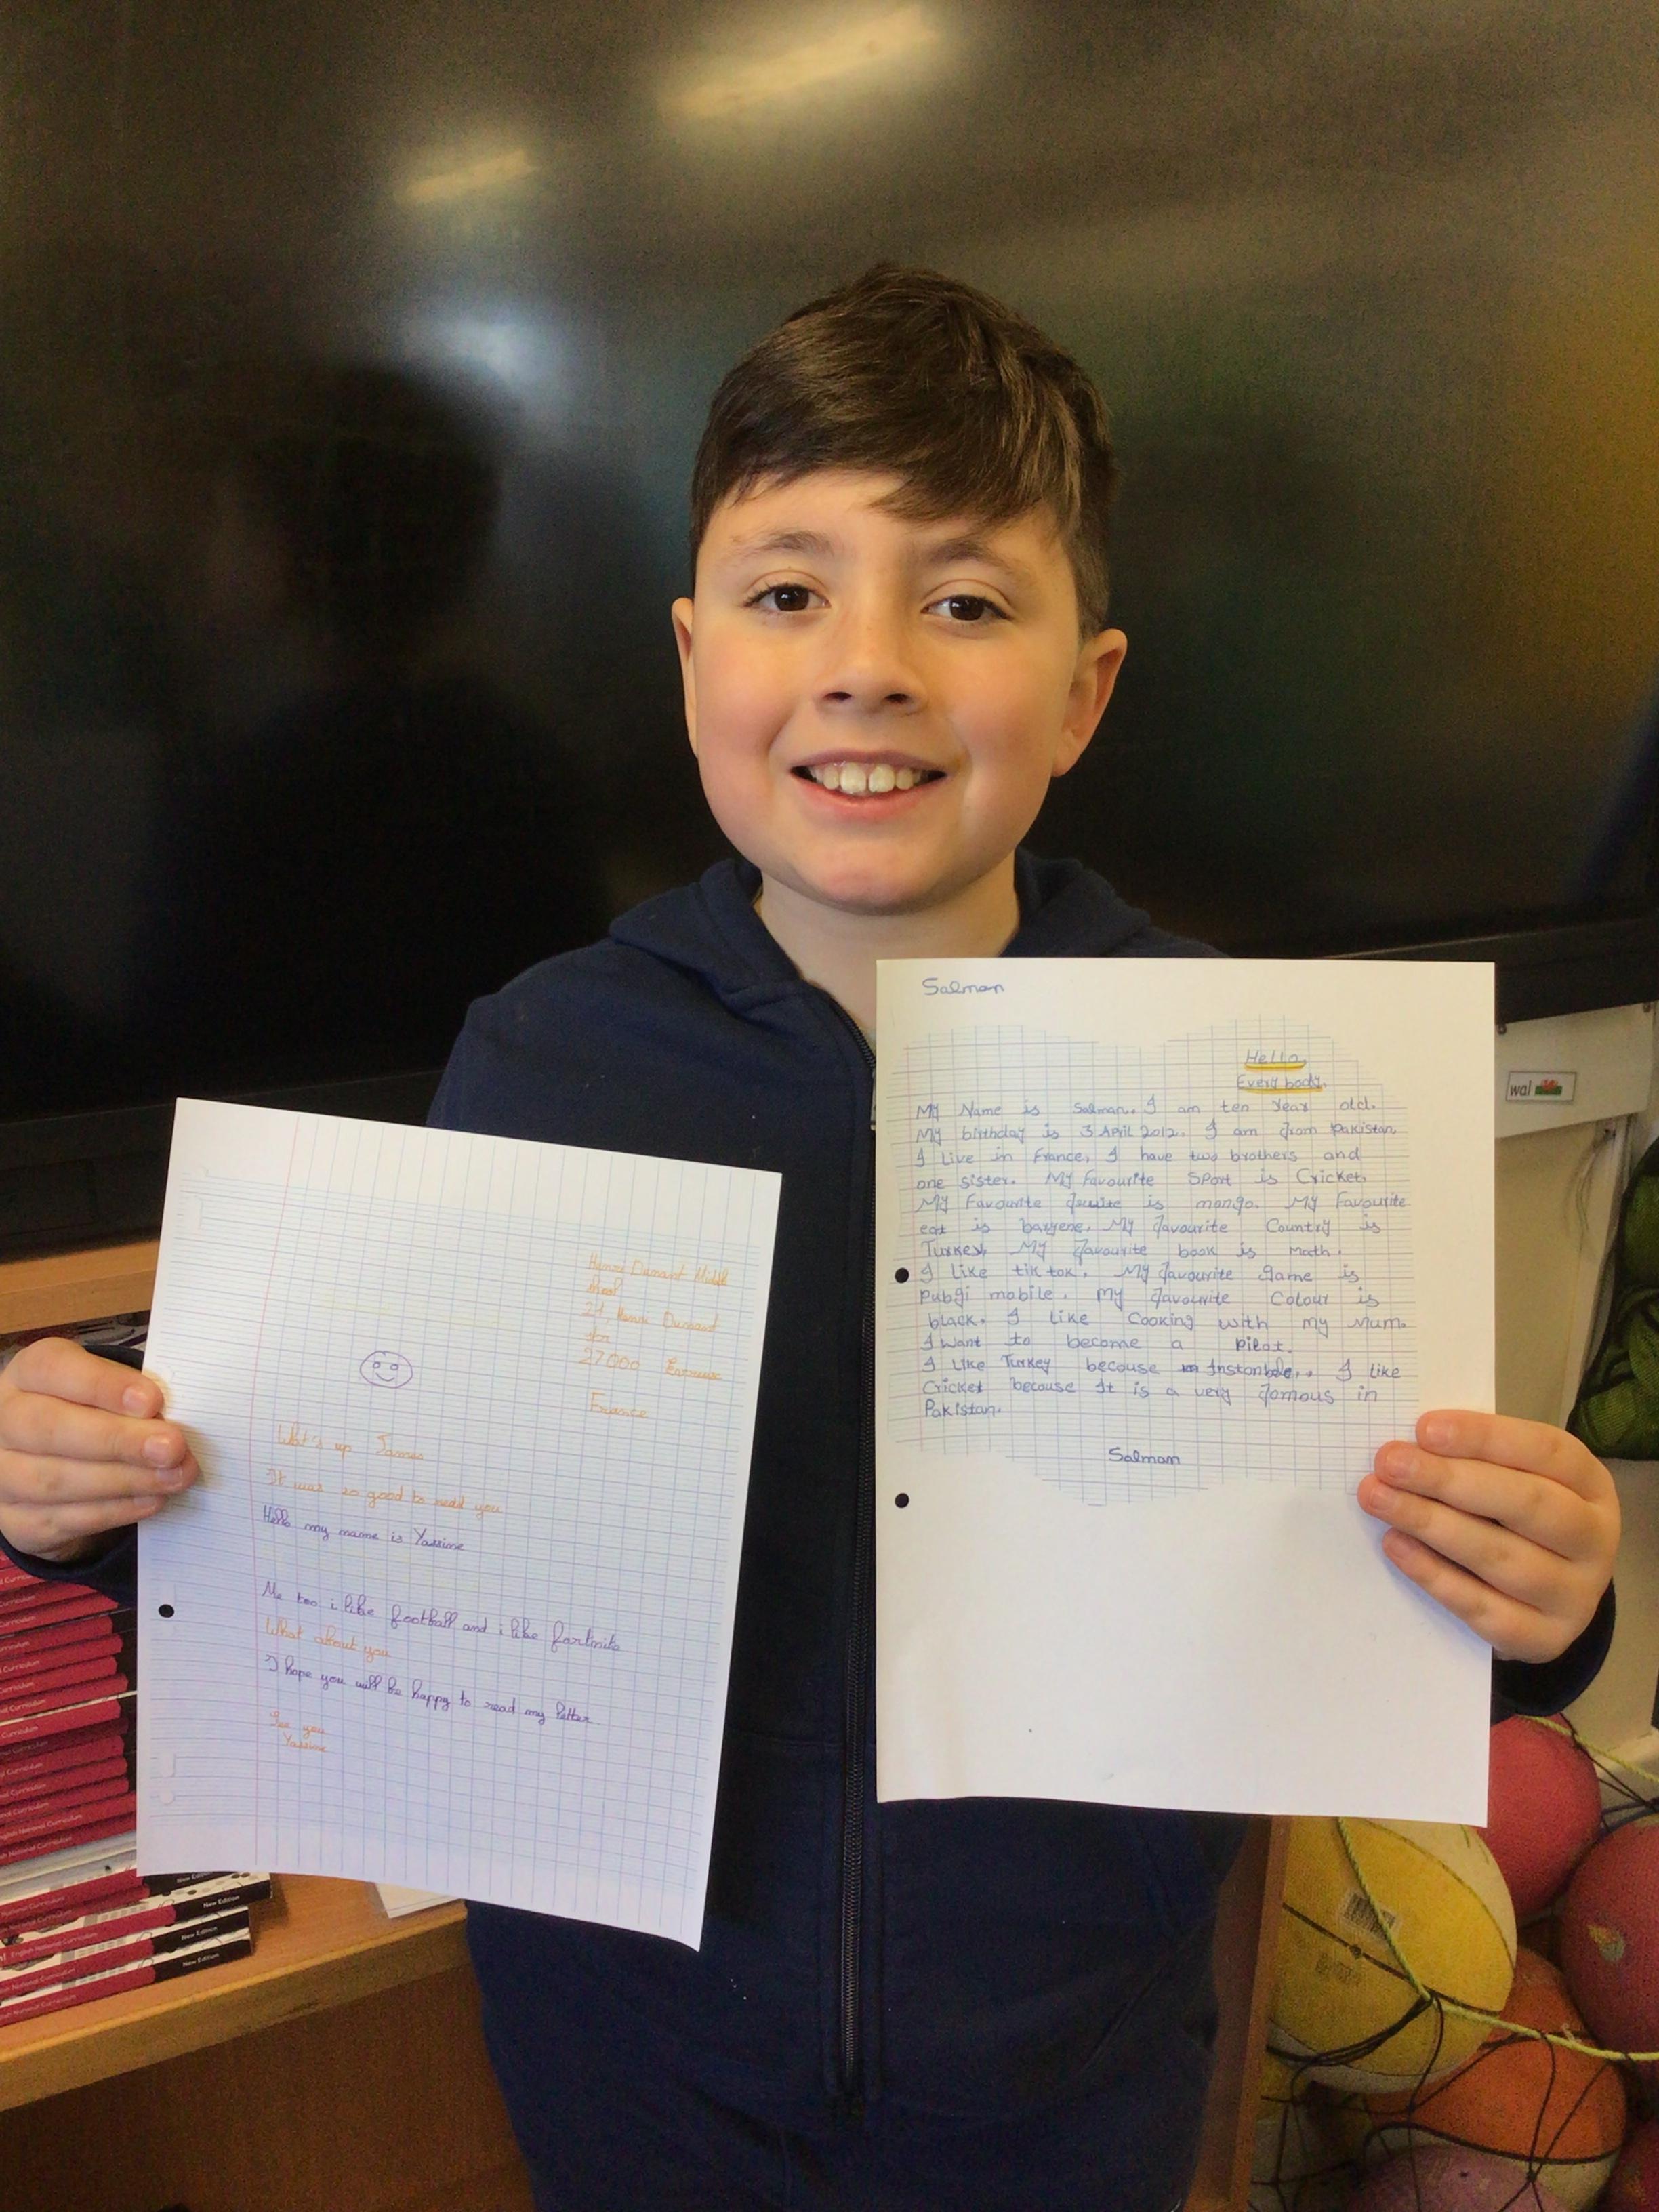 Salman
Hello,
Every body.
My Name is Salman. I am ten Year old.
My birthday is 3 April 2012. I am from Pakistan,
I Live in France, I have two brothers and
one sister. My Favourite Sport is Cricket.
My Favourite is mango. My Favourite
eat is My favourite Country is
Turkey, My favourite book is Math.
I Like tik tok. My favourite game is
pubgi mobile. My favourite Colour is
black. I like Cooking with my Mum.
I Want to become a pilot.
I Like Turkey becouse I like
Cricket becouse It is a very famous in
Pakistan.
Salman
Henri Dunant Middle
21, Henri Dunant
27000 Evreux
France
What's up James
It was so good to read you
Hello my name is Yassine
Me too i like football and i like fortnite
What about you
I hope you will be happy to read my letter
See you
Yassine
wal
English National Curriculum
New Edition
New Edition
New Edition